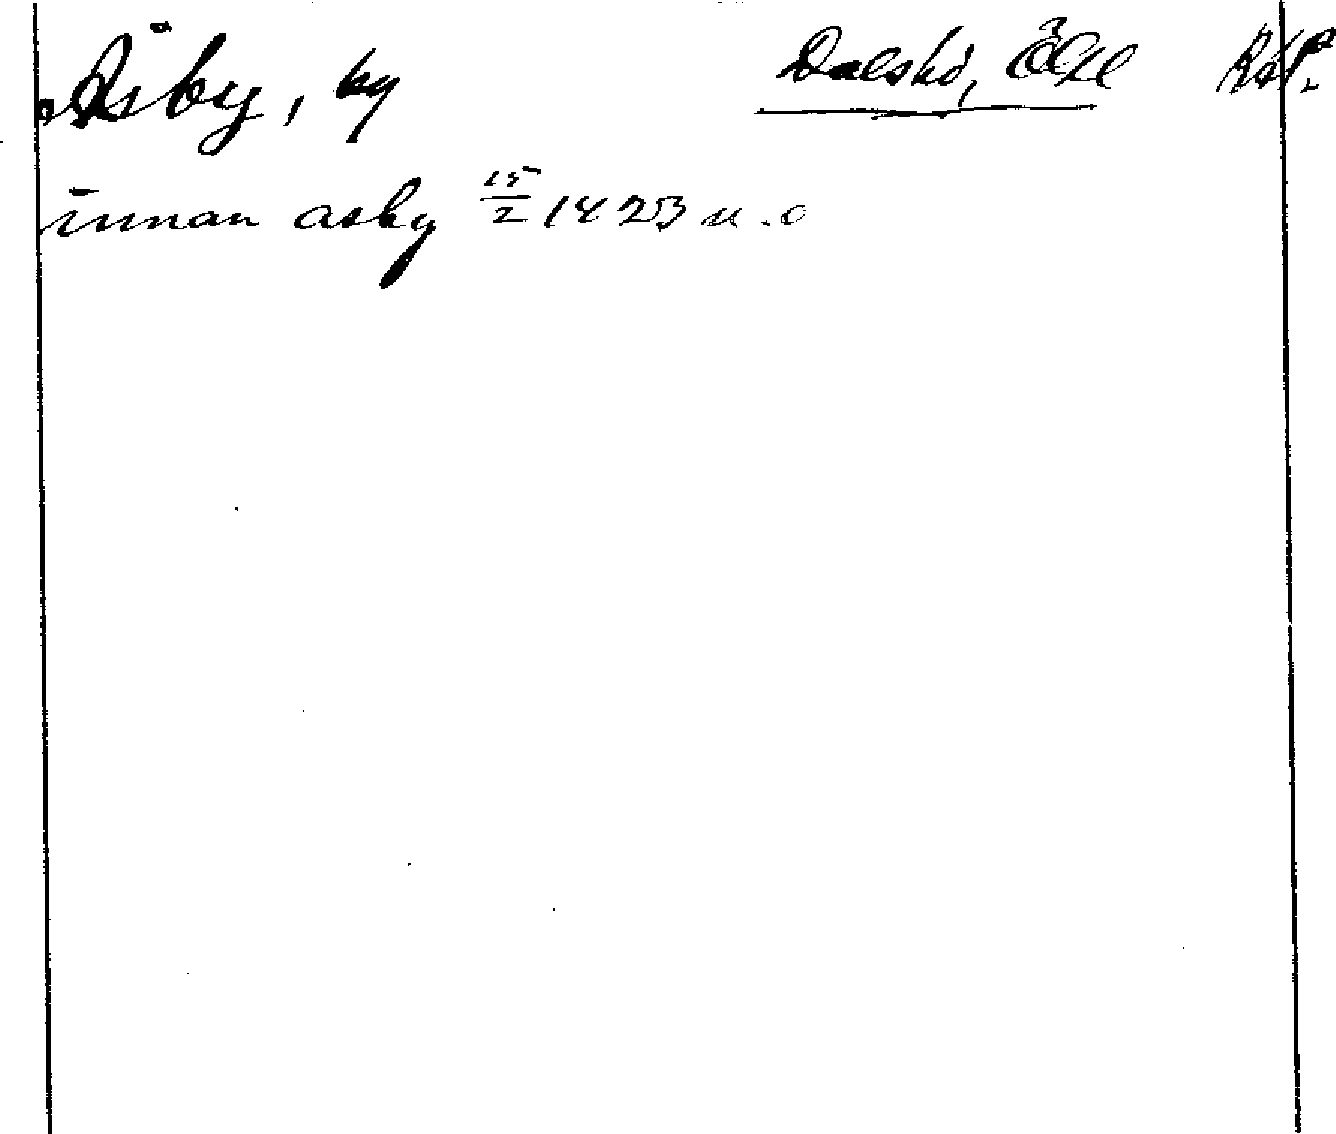 Åsby, by Dalskö, Ög
innan asby 15/2 1423 u.o